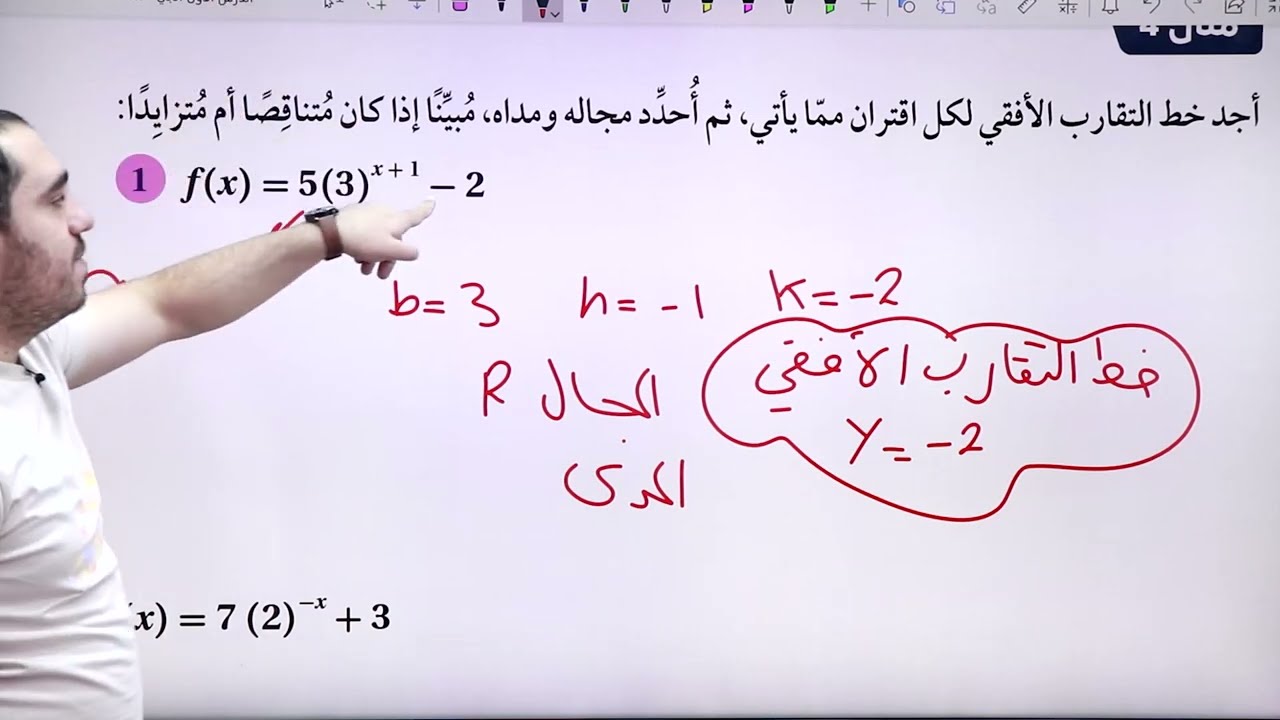 مثال 4
أجد خط التقارب الأفقي لكل اقتران ممّا يأتي، ثم أُحدِّد مجاله ومداه، مُبيِّنًا إذا كان مُتناقِصًا أم مُتزايِدًا:
1 f(x) = 5(3)^{x + 1} − 2
b = 3 h = -1 K = -2
خط التقارب الأفقي
y = -2
المجال R
المدى
(x) = 7 (2)^{−x} + 3